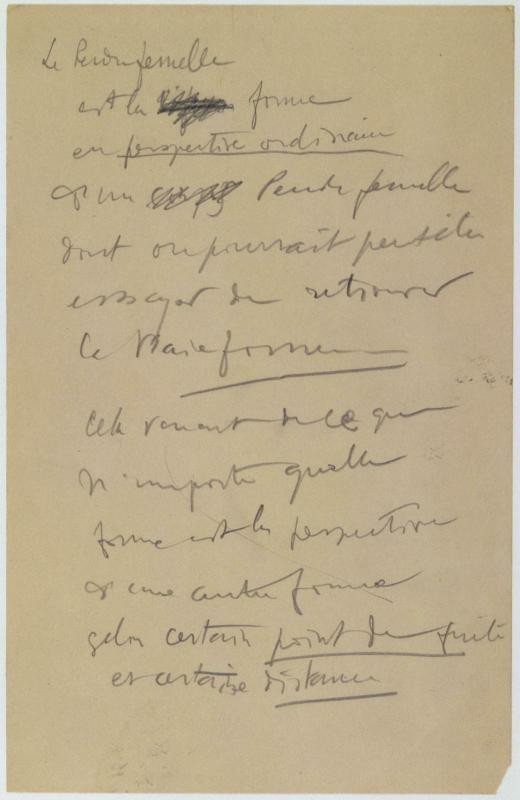 Le Pendu femelle
est la forme
en perspective ordinaire
d'un Pendu femelle
dont on pourrait peut-être
essayer de retrouver
la vraie forme
Cela venant de ce que
n'importe quelle
forme est la perspective
d'une autre forme
selon certain point de fuite
et certaine distance